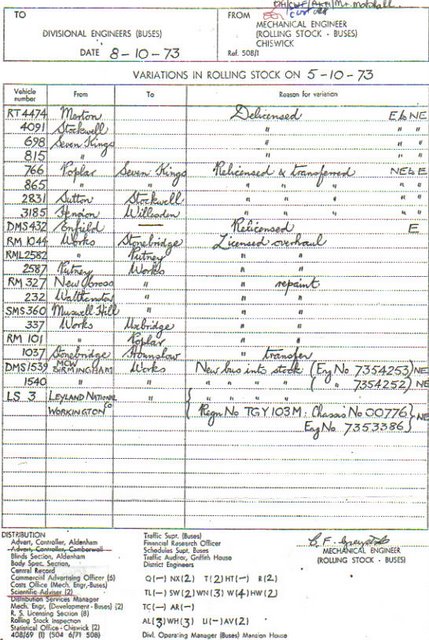 TO
DIVISIONAL ENGINEERS (BUSES)
DATE 8-10-73
FROM
MECHANICAL ENGINEER
(ROLLING STOCK - BUSES)
CHISWICK
Ref. 508/1
VARIATIONS IN ROLLING STOCK ON 5-10-73
Vehicle number From To Reason for variation
RT 4474 Merton Delicensed E & NE
4091 Stockwell " " "
698 Seven Kings " " "
815 " " " "
766 Poplar Seven Kings Relicensed & transferred NE & E
865 " " " " " "
2831 Sutton Stockwell " " " "
3185 Hendon Willesden " " " "
DMS 432 Enfield — Relicensed E
RM 1044 Works Stonebridge Licensed overhaul
RML 2582 " Putney " "
2587 Putney Works " "
RM 327 New Cross " " repaint
232 Walthamstow " " "
SMS 360 Muswell Hill " " "
337 Works Uxbridge " "
RM 101 " Poplar " "
1037 Stonebridge Hounslow " transfer
DMS 1539 MCW BIRMINGHAM Works New bus into stock (Eng No 7354253) NE
1540 " " " " " " ( " 7354252) NE
LS 3 LEYLAND NATIONAL Co " { " " " "
WORKINGTON { Regn No TGY 103M : Chassis No 00776 } NE
Eng No 7353386 }
DISTRIBUTION
Advert. Controller, Aldenham
Advert. Controller, Camberwell
Blinds Section, Aldenham
Body Spec. Section,
Central Record
Commercial Advertising Officer (6)
Costs Office (Mech. Engr.-Buses)
Scientific Adviser (2)
Distribution Services Manager
Mech. Engr. (Development - Buses) (2)
R. S. Licensing Section (8)
Rolling Stock Inspection
Statistical Office - Chiswick (2)
408/69 (1) (504 6/71 508)
Traffic Supt. (Buses)
Financial Research Officer
Schedules Supt. Buses
Traffic Auditor, Griffith House
District Engineers
Q(-) NX(2) T(2) HT(-) R(2)
TL(-) SW(2) WN(3) W(4) HW(2)
TC(-) AR(-)
AL(3) WH(3) LI(-) AV(2)
Divl. Operating Manager (Buses) Mansion House
MECHANICAL ENGINEER
(ROLLING STOCK - BUSES)